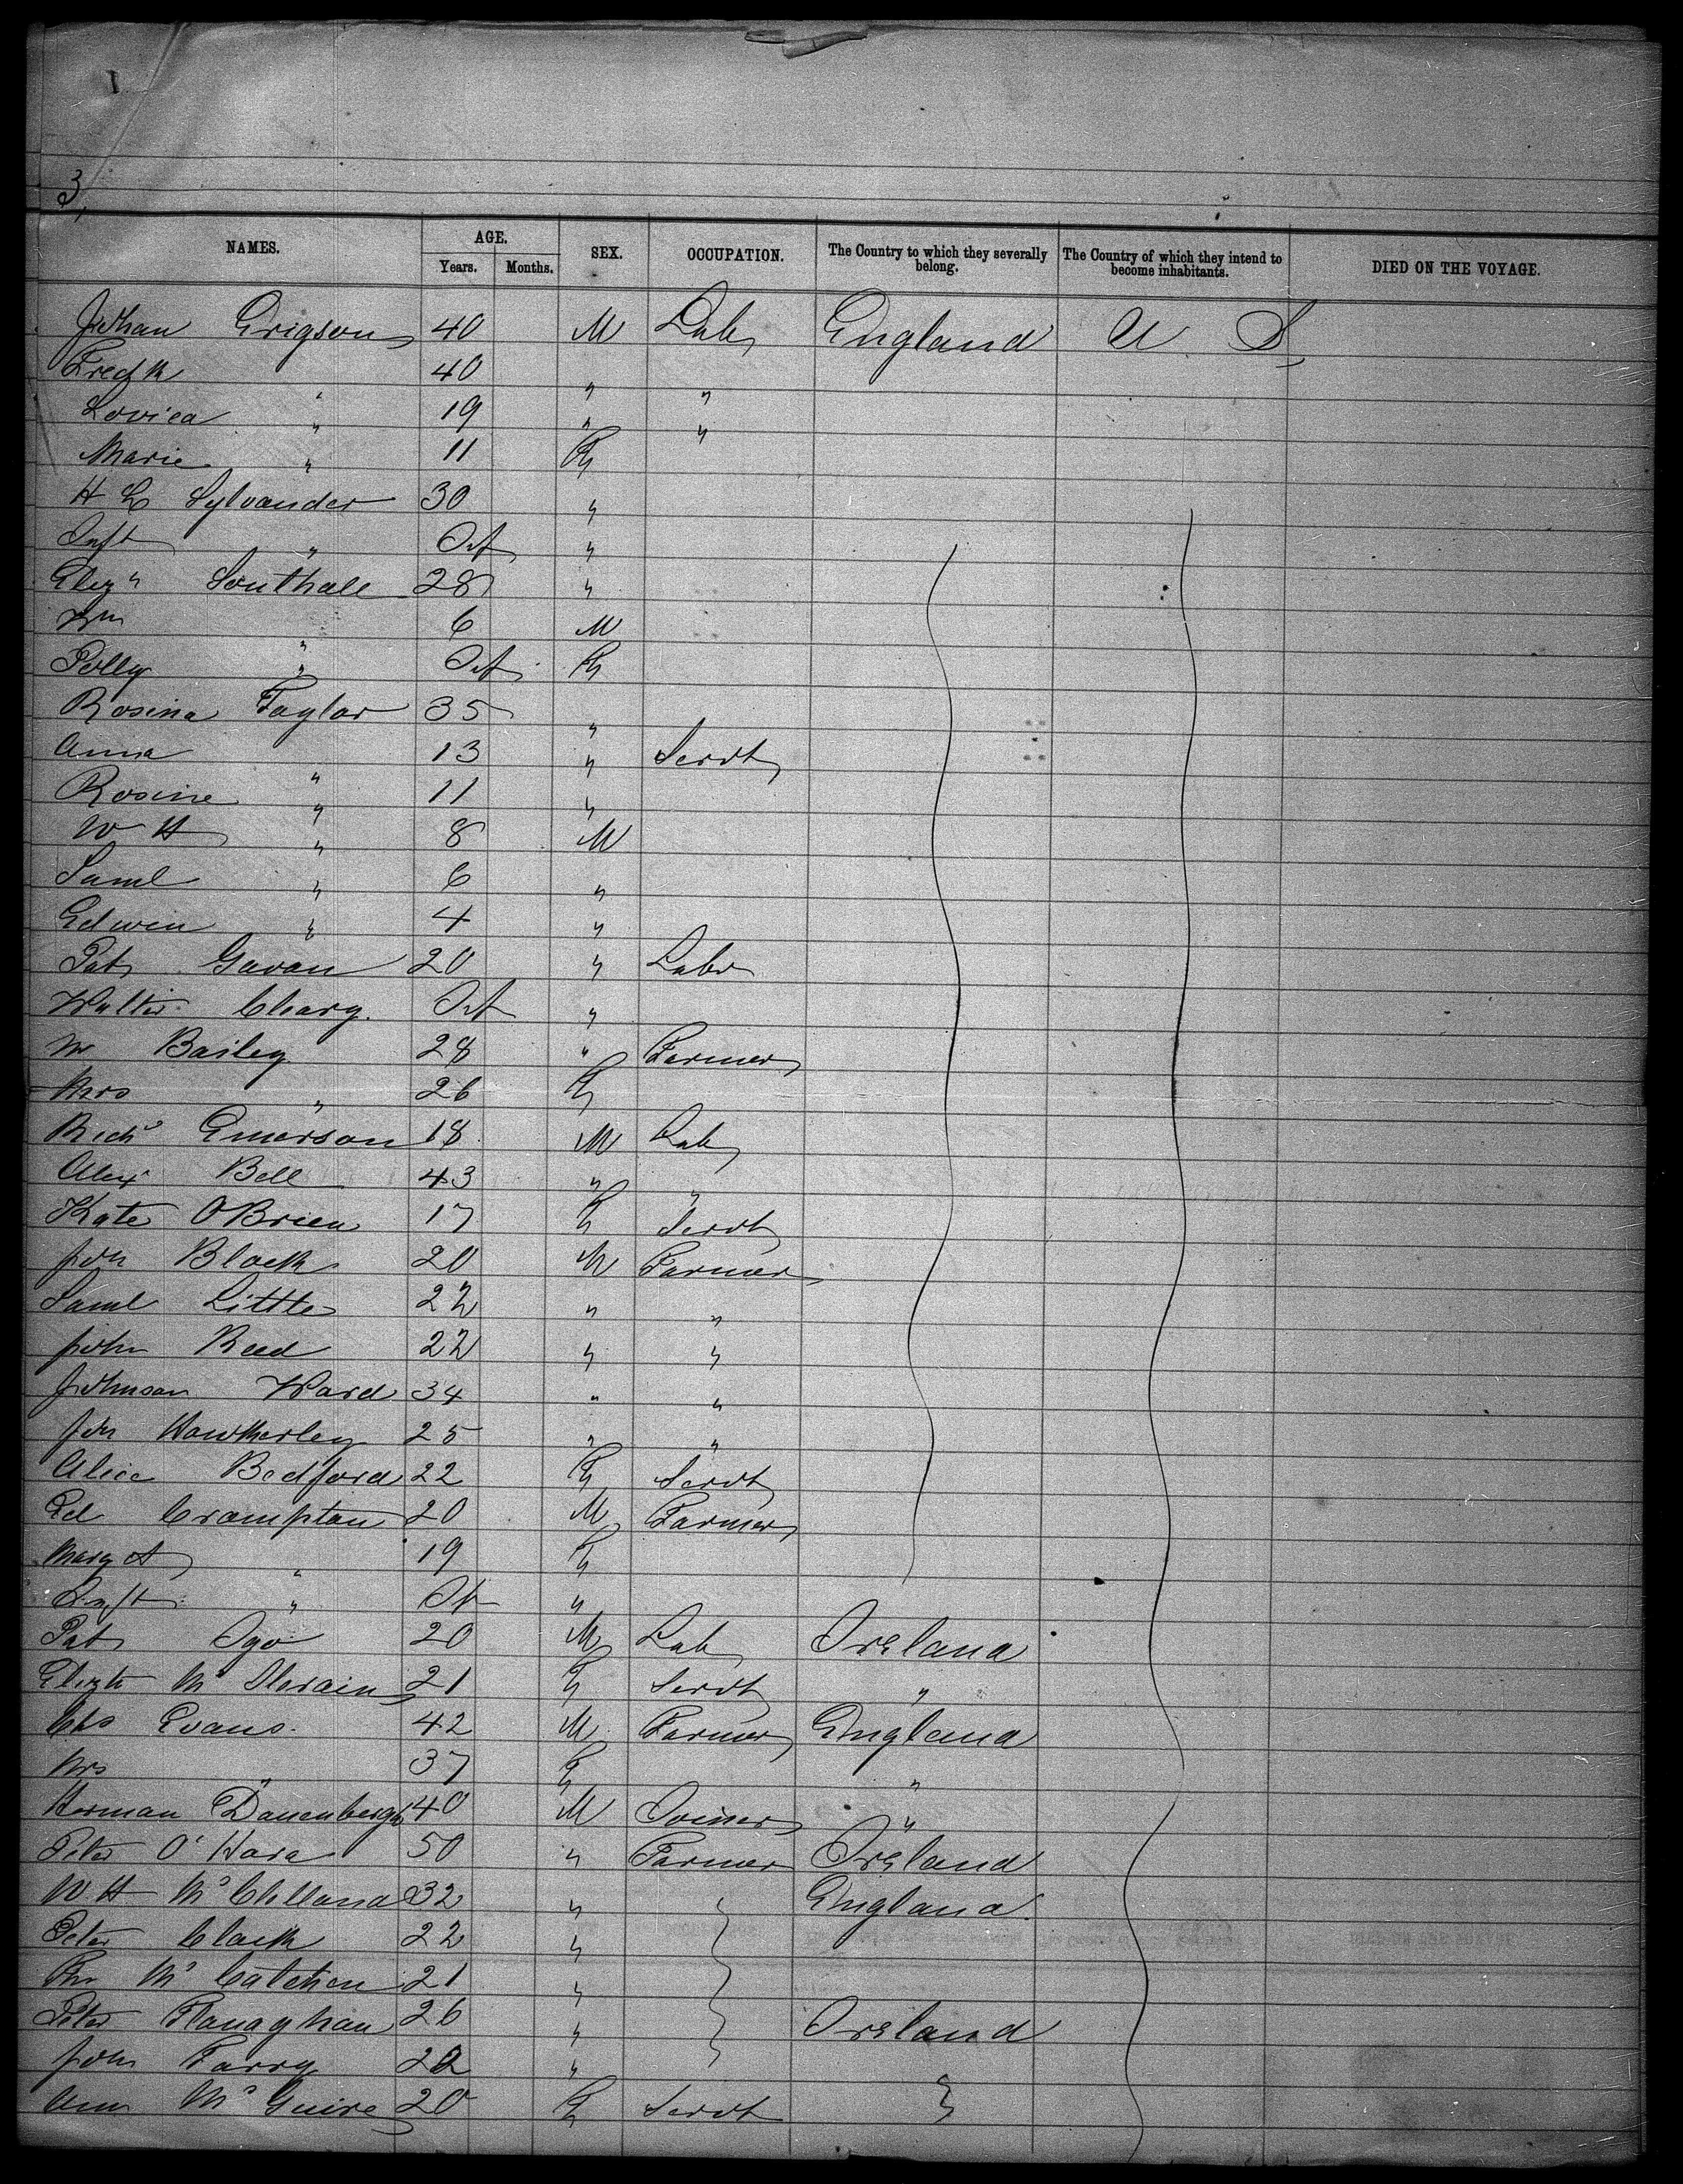 3
NAMES. AGE. SEX. OCCUPATION. The Country to which they severally belong. The Country of which they intend to become inhabitants. DIED ON THE VOYAGE.
Years. Months.
Johan Grigson 40 M Lab England U S
Fredk " 40 " "
Lovica " 19 " "
Marie " 11 F
H L Sylvander 30 "
Inft " "
Eliz" Southall 28 "
Wm " 6 M
Polly " F
Rosina Taylor 35 "
Anna " 13 " Servt
Rosine " 11 "
W H " 8 M
Saml " 6 "
Edwin " 4 "
Pat Gavan 20 " Labr
Walter "
Mr Bailey 28 " Farmer
Mrs " 26 F
Richd Emerson 18 M Lab
Alex Bell 43 " "
Kate OBrien 17 F Servt
Jon Black 20 M Farmer
Saml Little 22 " "
John Reed 22 " "
Johnson Ward 34 " "
Jon Hawtherley 25 " "
Alice Bedford 22 F Servt
Ed Crompton 20 M Farmer
Mary A " 19 F
Inft " "
Pat 20 M Lab Ireland
Elizth 21 F Servt "
Chs Evans 42 M Farmer England
Mrs " 37 F "
Herman Danenbergh 40 M Joiner "
Peter O'Hara 50 " Farmer Ireland
W H McClelland 32 " England
Peter Clark 22 "
McCatchen 21 "
Peter Flanaghan 26 " Ireland
John Farry 22 "
Ann McGuire 20 F Servt